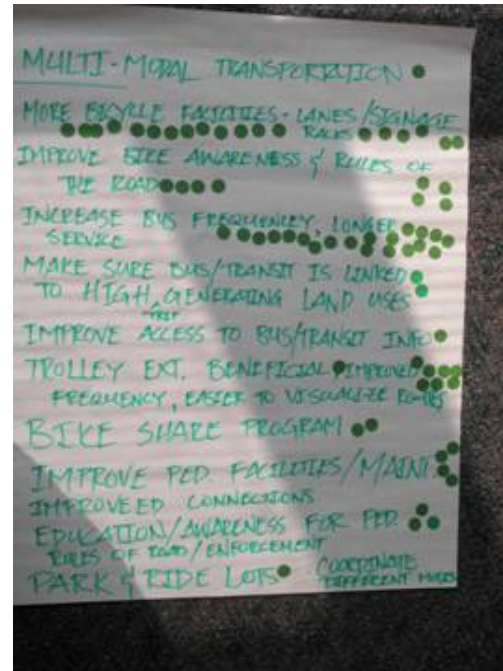 MULTI-MODAL TRANSPORTATION
MORE BICYCLE FACILITIES - LANES/SIGNAGE
RACKS
IMPROVE BIKE AWARENESS & RULES OF
THE ROAD
INCREASE BUS FREQUENCY, LONGER
SERVICE
MAKE SURE BUS/TRANSIT IS LINKED
TO HIGH, GENERATING LAND USES
TRIP
IMPROVE ACCESS TO BUS/TRANSIT INFO
TROLLEY EXT. BENEFICIAL, IMPROVED
FREQUENCY, EASIER TO VISUALIZE ROUTES
BIKE SHARE PROGRAM
IMPROVE PED. FACILITIES/MAINT.
IMPROVEED CONNECTIONS
EDUCATION/AWARENESS FOR PED.
RULES OF ROAD/ENFORCEMENT
PARK & RIDE LOTS COORDINATE
DIFFERENT MODES